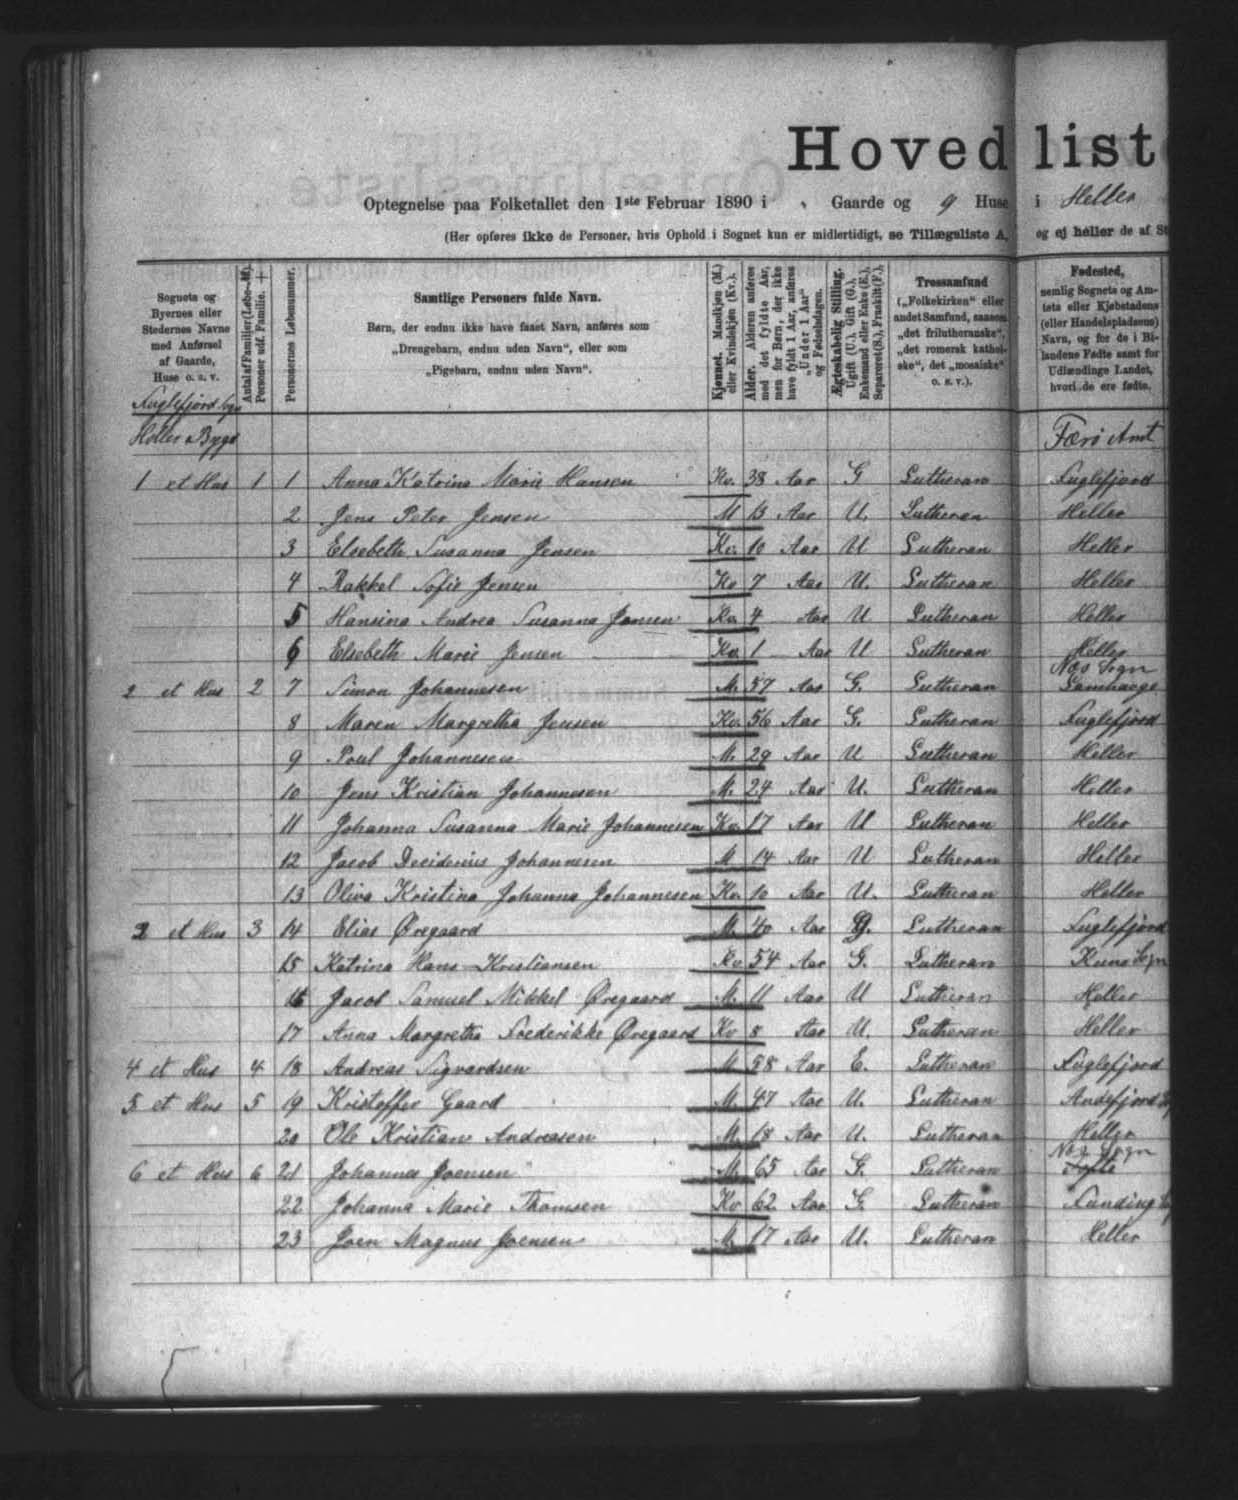 Hovedliste
Optegnelse paa Folketallet den 1ste Februar 1890 i Gaarde og 9 Huse i Heller
(Her opføres ikke de Personer, hvis Ophold i Sognet kun er midlertidigt, se Tillægsliste A, og ej heller de af St
Sognets og Byernes eller Stedernes Navne med Anførsel af Gaarde, Huse o. s. v.
Antal af Familier (Løbe-№). Personer udf. Familie. +
Personernes Løbenummer.
Samtlige Personers fulde Navn.
Børn, der endnu ikke have faaet Navn, anføres som
„Drengebarn, endnu uden Navn“, eller som
„Pigebarn, endnu uden Navn“.
Kjønnet. Mandkjøn (M.) eller Kvindekjøn (Kv.).
Alder. Alderen anføres med det fyldte Aar, men for Børn, der ikke have fyldt 1 Aar, anføres „Under 1 Aar“ og Fødselsdagen.
Ægteskabelig Stilling. Ugift (U.), Gift (G.), Enkemand eller Enke (E.), Separeret (S.), Fraskilt (F.).
Trossamfund („Folkekirken“ eller andet Samfund, saasom „det frilutheranske“, „det romersk katholske“, det „mosaiske“ o. s. v.).
Fødested, nemlig Sognets og Amtets eller Kjøbstadens (eller Handelspladsens) Navn, og for de i Bilandene Fødte samt for Udlændinge Landet, hvori de ere fødte.
Fuglefjord Sogn
Heller Bygd Færø Amt
1 et Hus 1 1 Anna Katrina Marie Hansen Kv. 38 Aar G Lutheran Fuglefjord
2 Jens Peter Jensen M 13 Aar U. Lutheran Heller
3 Elsebeth Susanna Jensen Kv. 10 Aar U Lutheran Heller
4 Rakkel Sofie Jensen Kv 7 Aar U. Lutheran Heller
5 Hansina Andrea Susanna Jensen Kv. 4 Aar U Lutheran Heller
6 Elsebeth Marie Jensen Kv. 1 Aar U Lutheran Heller
2 et Hus 2 7 Simon Johannesen M. 57 Aar G. Lutheran Næs Sogn Lamhauge
8 Maren Margretha Jensen Kv. 56 Aar G. Lutheran Fuglefjord
9 Poul Johannesen M. 29 Aar U Lutheran Heller
10 Jens Kristian Johannesen M. 24 Aar U. Lutheran Heller
11 Johanna Susanna Marie Johannesen Kv. 17 Aar U Lutheran Heller
12 Jacob Deciderius Johannesen M 14 Aar U Lutheran Heller
13 Oliva Kristina Johanna Johannesen Kv. 10 Aar U. Lutheran Heller
3 et Hus 3 14 Elias Øregaard M. 40 Aar G. Lutheran Fuglefjord
15 Katrina Hans Kristiansen Kv 54 Aar G. Lutheran Kunø Sogn
16 Jacob Samuel Mikkel Øregaard M. 11 Aar U Lutheran Heller
17 Anna Margretha Frederikke Øregaard Kv 8 Aar U. Lutheran Heller
4 et Hus 4 18 Andreas Sigvardsen M 58 Aar E. Lutheran Fuglefjord
5 et Hus 5 19 Kristoffer Gaard M. 47 Aar U. Lutheran Andefjord
20 Ole Kristian Andreasen M. 18 Aar U. Lutheran Heller
6 et Hus 6 21 Johannes Joensen M. 65 Aar G. Lutheran Næs Sogn
22 Johanna Marie Thomsen Kv 62 Aar G. Lutheran Funding
23 Joen Magnus Joensen M. 17 Aar U. Lutheran Heller